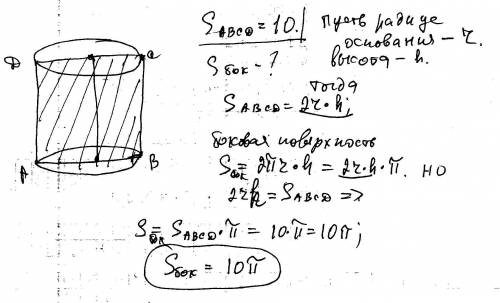 D C
A B
S_ABCD = 10.
S_бок - ?
Пусть радиус
основания - r.
высота - h.
тогда
S_ABCD = 2r·h;
боковая поверхность
S_бок = 2πr·h = 2r·h·π. но
2rh = S_ABCD =>
S_б = S_ABCD·π = 10·π = 10π;
S_бок = 10π